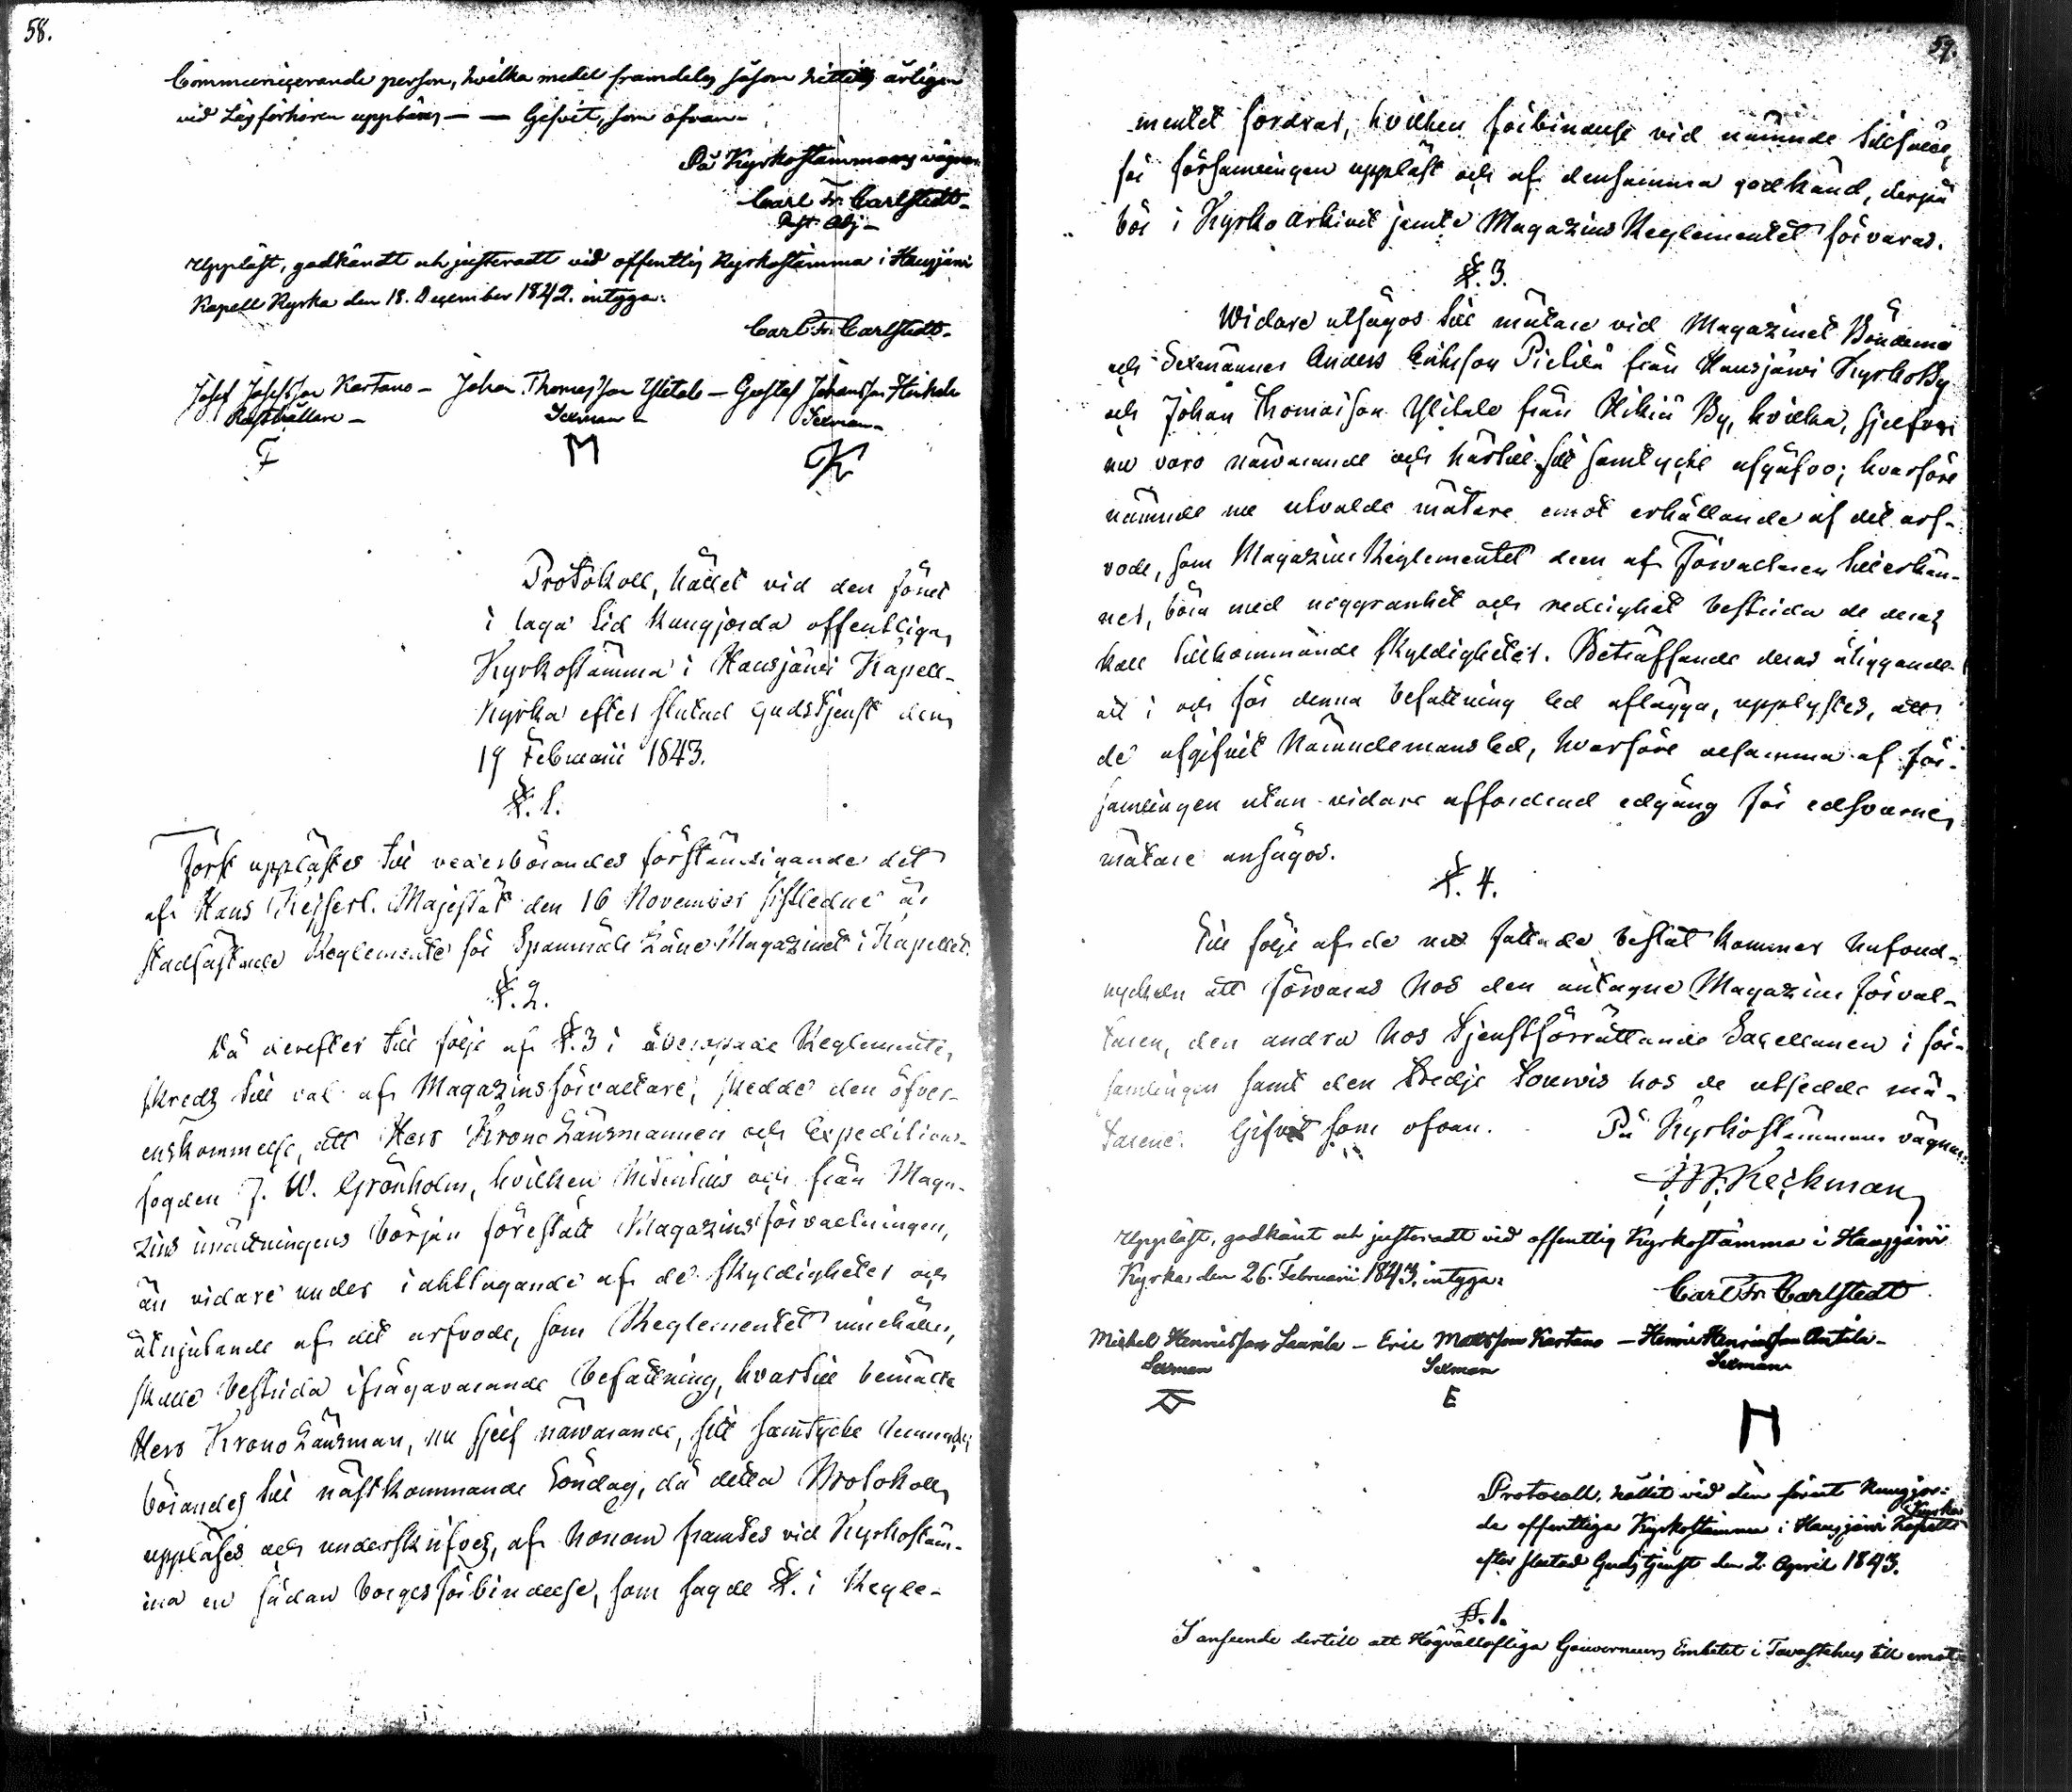 58.
Communicerande person, hvilka medel framdeles såsom hittills årligen
vid Läsförhören uppbäres — — Gifvit, som ofvan.
På Kyrkostämmans vägnar
Carl Fr. Carlstedt.
Past. Adj.
Uppläst, godkändt och justeradt vid offentlig Kyrkostämma i Hausjärvi
Kapell Kyrka den 18. December 1842. intyga:
Carl Fr. Carlstedt.
Josef Josefsson Kartano — Johan Thomasson Ylitalo — Gustaf Johansson
Rusthållare — Sexman — Sexman
M K
Protokoll, hållet vid den förut
i laga tid kungjorda offentliga
Kyrkostämma i Hausjärvi Kapell-
Kyrka efter slutad Gudstjenst den
19 Februarii 1843.
§. 1.
Först upplästes till vederbörandes förständigande det
af Hans Kejserl. Majestät den 16 November sistledne år
stadfästade Reglemente för Spanmåls Låne Magazinet i Kapellet.
§. 2.
Då derefter till följe af §. 3 i åberopade Reglemente,
skreds till val af Magazinsförvaltare, skedde den öfver-
enskommelse, att Herr Krono Länsmannen och Expeditions-
fogden J. W. Grönholm, hvilken hitintills och från Maga-
zins inrättningens början förestått Magazins förvaltningen,
än vidare under iakttagande af de skyldigheter och
åtnjutande af det arfvode, som Reglementet innehåller,
skulle bestrida ifrågavarande befattning, hvartill bemälte
Herr Krono Länsman, nu sjelf närvarande, sitt samtycke
börandes till nästkommande Söndag, då detta Protokoll
uppläses och underskrifves, af honom framtes vid Kyrkostäm-
ma en sådan borgesförbindelse, som sagde §. i Regle-
59.
mentet fordrar, hvilken förbindelse vid nämnde tillfälle,
för församlingen uppläst och af densamma godkänd, derpå
bör i Kyrko Arkivet jemte Magazins Reglementet förvaras.
§. 3.
Widare utsågos till mätare vid Magazinet Bönderne
och Sexmännen Anders Eriksson Pietilä från Hausjärvi Kyrkoby
och Johan Thomasson Ylitalo från Hikiä By, hvilka, sjelfve
nu voro närvarande och härtill sitt samtycke afgåfvo; hvarföre
nämnde nu utvalde mätare emot erhållande af det arf-
vode, som Magazins Reglementet dem af Förvaltaren tillerkän-
ner, böra med noggranhet och redlighet bestrida de deras
kall tillkommande skyldigheter. Beträffande deras åliggande
att i och för denna befattning ed aflägga, upplystes, att
de afgifvit Nämndemans ed, hvarföre desamma af för-
samlingen utan vidare affordrad edgång för edsvorne
mätare ansågos.
§. 4.
Till följe af de nu fattade beslut kommer hufvud-
nyckeln att förvaras hos den antagne Magazins förval-
taren, den andra hos Tjenstförrättande Sacellanen i för-
samlingen samt den tredje tourvis hos de utsedde mä-
tarene. Gifvet som ofvan. På Kyrkostämmans vägnar:
Heckman
Uppläst, godkänt och justeradt vid offentlig Kyrkostämma i Hausjärvi
Kyrka den 26. Februarii 1843. intyga:
Carl Fr. Carlstedt
Mickel Henricsson Laurila — Eric Mattsson Kartano — Henric Henricsson Antila —
Sexman Sexman Sexman
E
H
Protocoll, hållit vid den förut kungjor-
da offentliga Kyrkostämma i Hausjärvi Kapells Kyrka
efter slutad Gudstjenst den 2. April 1843.
§. 1.
I anseende dertill att Högvällofliga Gouverneurs Embetet i Tavastehus till emot-